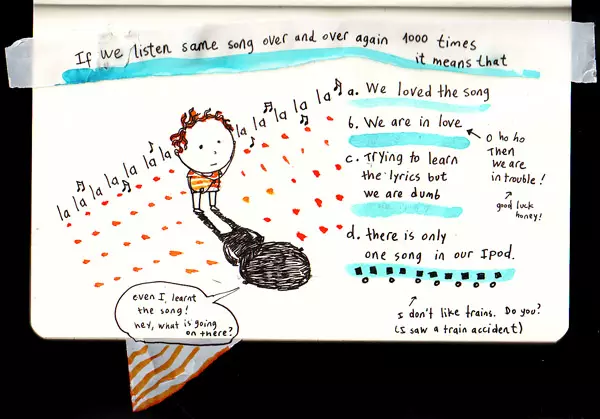 If we listen same song over and over again 1000 times
it means that
la la la la la la la la la la la
a. We loved the song
b. We are in love
O ho ho
Then
we are
in trouble!
good luck
honey!
c. Trying to learn
the lyrics but
we are dumb
d. there is only
one song in our Ipod.
I don't like trains. Do you?
(I saw a train accident)
even I, learnt
the song!
hey, what is going
on there?